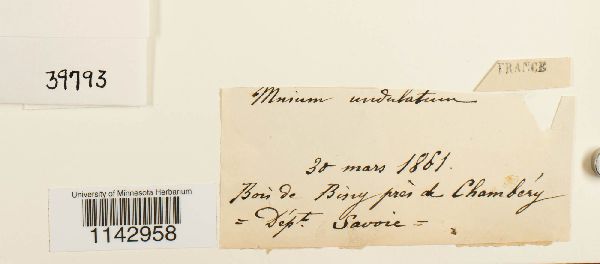 39793
FRANCE
Mnium undulatum
30 mars 1861.
Bois de Bissy près de Chambéry
= Dépt. Savoie =
University of Minnesota Herbarium
1142958